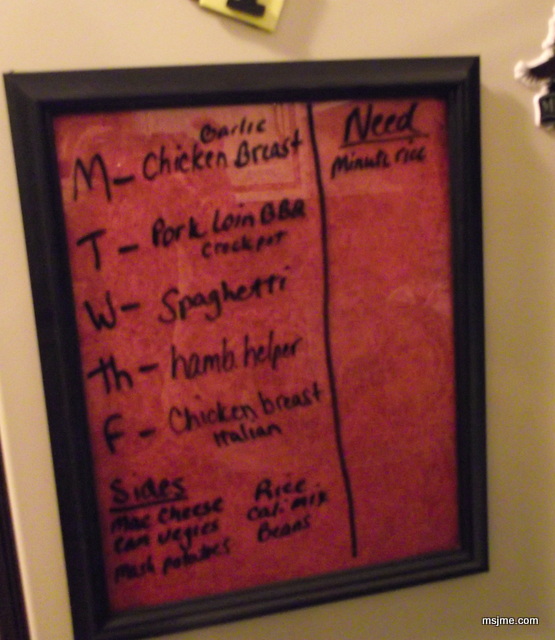 Garlic
M - Chicken Breast
T - Pork Loin BBQ
crockpot
W - Spaghetti
Th - hamb. helper
F - Chicken breast
italian
Sides
Mac Cheese
can vegies
mash potatoes
Rice
Cali mix
Beans
Need
Minute rice
msjme.com